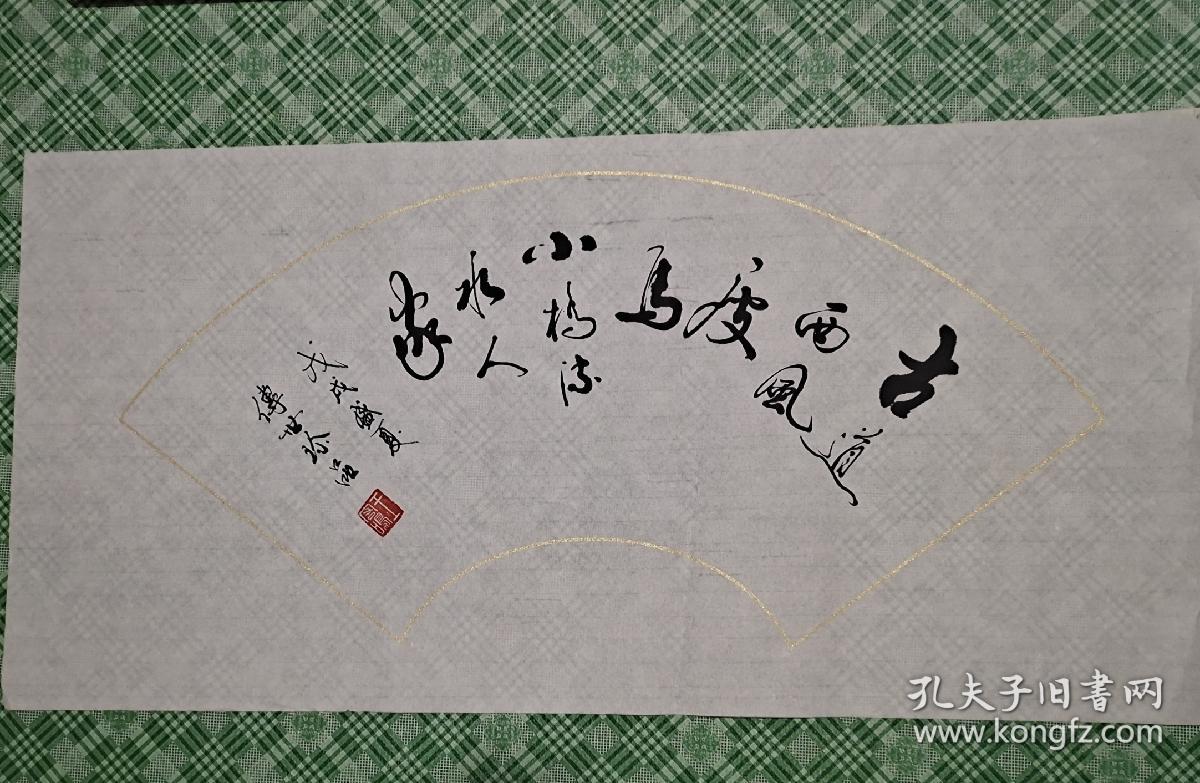 古道
西風
瘦
馬
小橋流
水人
家
戊戌盛夏
傅世珍
孔夫子旧書网
www.kongfz.com